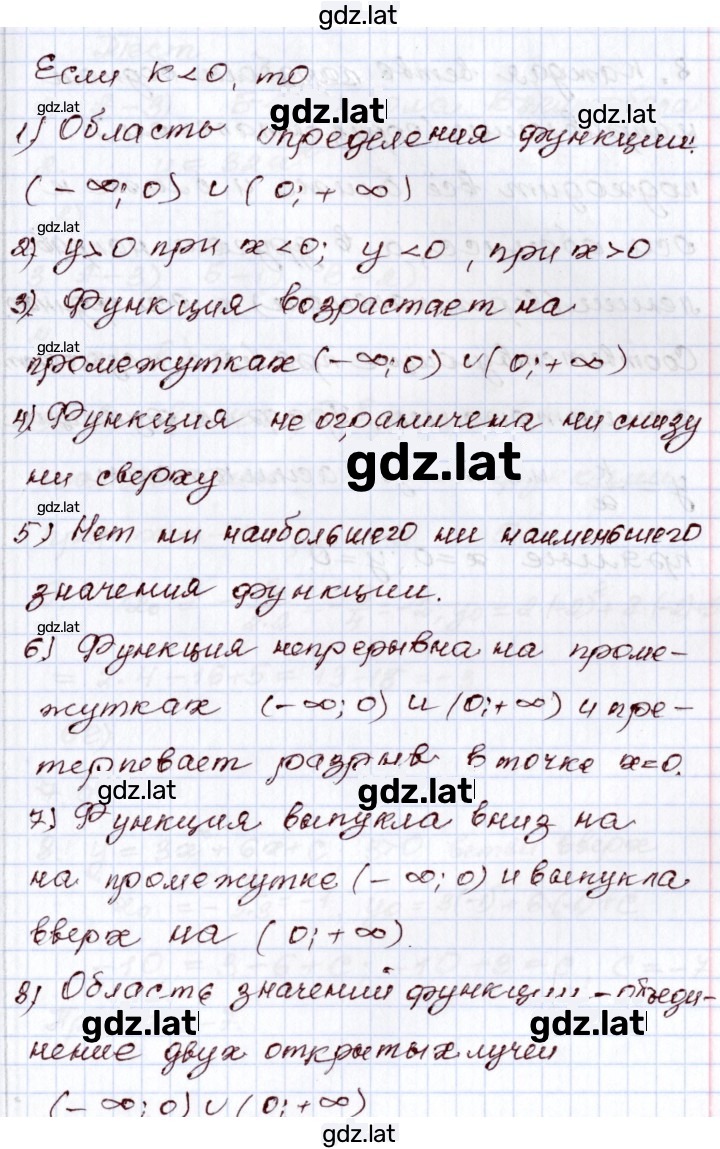 gdz.lat
Если к<0, то
gdz.lat
gdz.lat
gdz.lat
1) Область определения функции:
(-∞;0) ∪ (0;+∞)
gdz.lat
2) y>0 при x<0; y<0, при x>0
gdz.lat
3) Функция возрастает на
gdz.lat
промежутках (-∞;0) ∪ (0;+∞)
4) Функция не ограничена ни снизу
gdz.lat
ни сверху
gdz.lat
5) Нет ни наибольшего ни наименьшего
значения функции.
gdz.lat
6) Функция непрерывна на проме-
жутках (-∞;0) и (0;+∞) и пре-
терпевает разрыв в точке x=0.
gdz.lat
gdz.lat
7) Функция выпукла вниз на
на промежутке (-∞;0) и выпукла
вверх на (0;+∞).
8) Область значений функции - объеди-
gdz.lat
gdz.lat
gdz.lat
нение двух открытых лучей
(-∞;0) ∪ (0;+∞)
gdz.lat